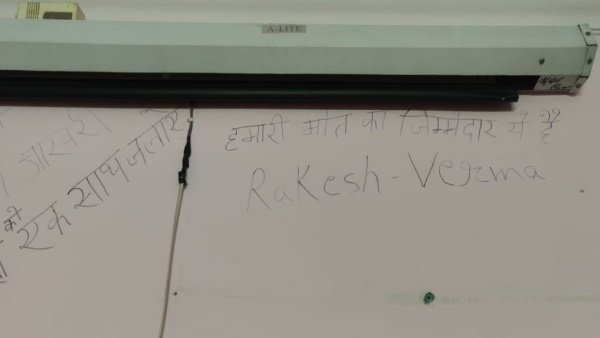 A-LITE
हमारी मौत का जिम्मेदार ये है
RaKesh-Verma
आखरी
एक साथ जलाऐ
को